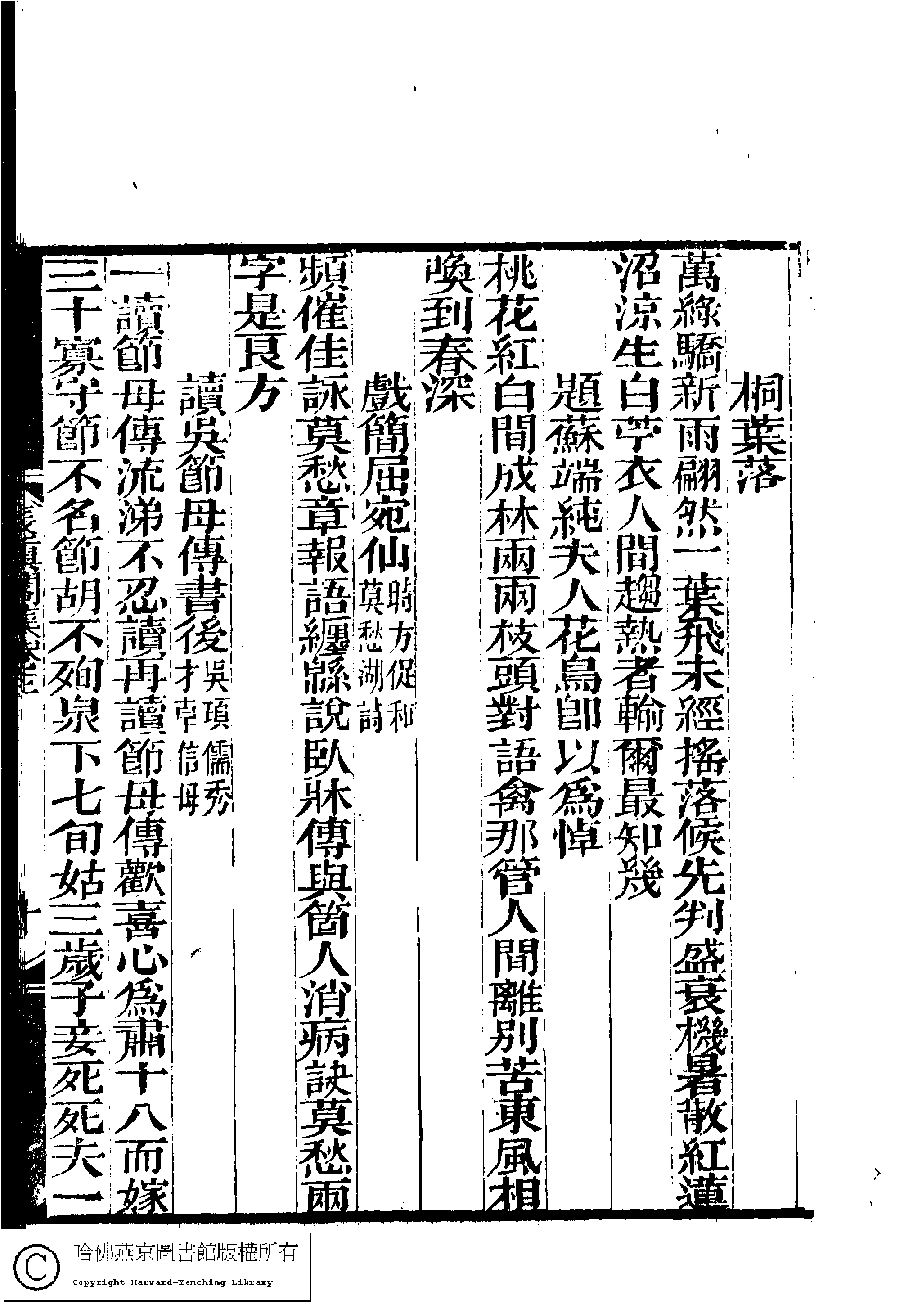 桐葉落
萬綠驕新雨翩然一葉飛未經搖落候先判盛衰機暑散紅蓮
沼涼生白苧衣人間趨熱者輸爾最知幾
題蘇端純夫人花鳥卽以爲悼
桃花紅白間成林兩兩枝頭對語禽那管人間離別苦東風相
喚到春深
戲簡屈宛仙時方促和莫愁湖詩
頻催佳詠莫愁章報語纏緜說臥牀傳與箇人消病訣莫愁兩
字是良方
讀吳節母傳書後吳項儒秀才卓信母
一讀節母傳流涕不忍讀再讀節母傳歡喜心爲肅十八而嫁
三十寡守節不名節胡不殉泉下七旬姑三歲子妾死死夫一
哈佛燕京圖書館版權所有
Copyright Harvard-Yenching Library